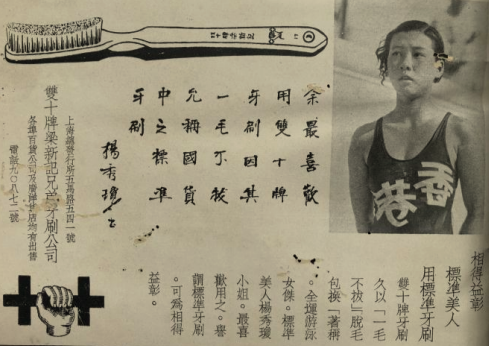 香港
余最喜歡
用雙十牌
牙刷因其
一毛不拔
允稱國貨
中之標準
牙刷
楊秀瓊
上海總發行所五馬路五四一號
雙十牌梁新記兄弟牙刷公司
各埠百貨公司及廣洋什店均有出售
電話九〇八七二號
相得益彰
標準美人
用標準牙刷
雙十牌牙刷
久以「一毛
不拔」脫毛
包換「著稱
。全運游泳
女傑。標準
美人楊秀瓊
小姐。最喜
歡用之。譽
謂標準牙刷
。可為相得
益彰。